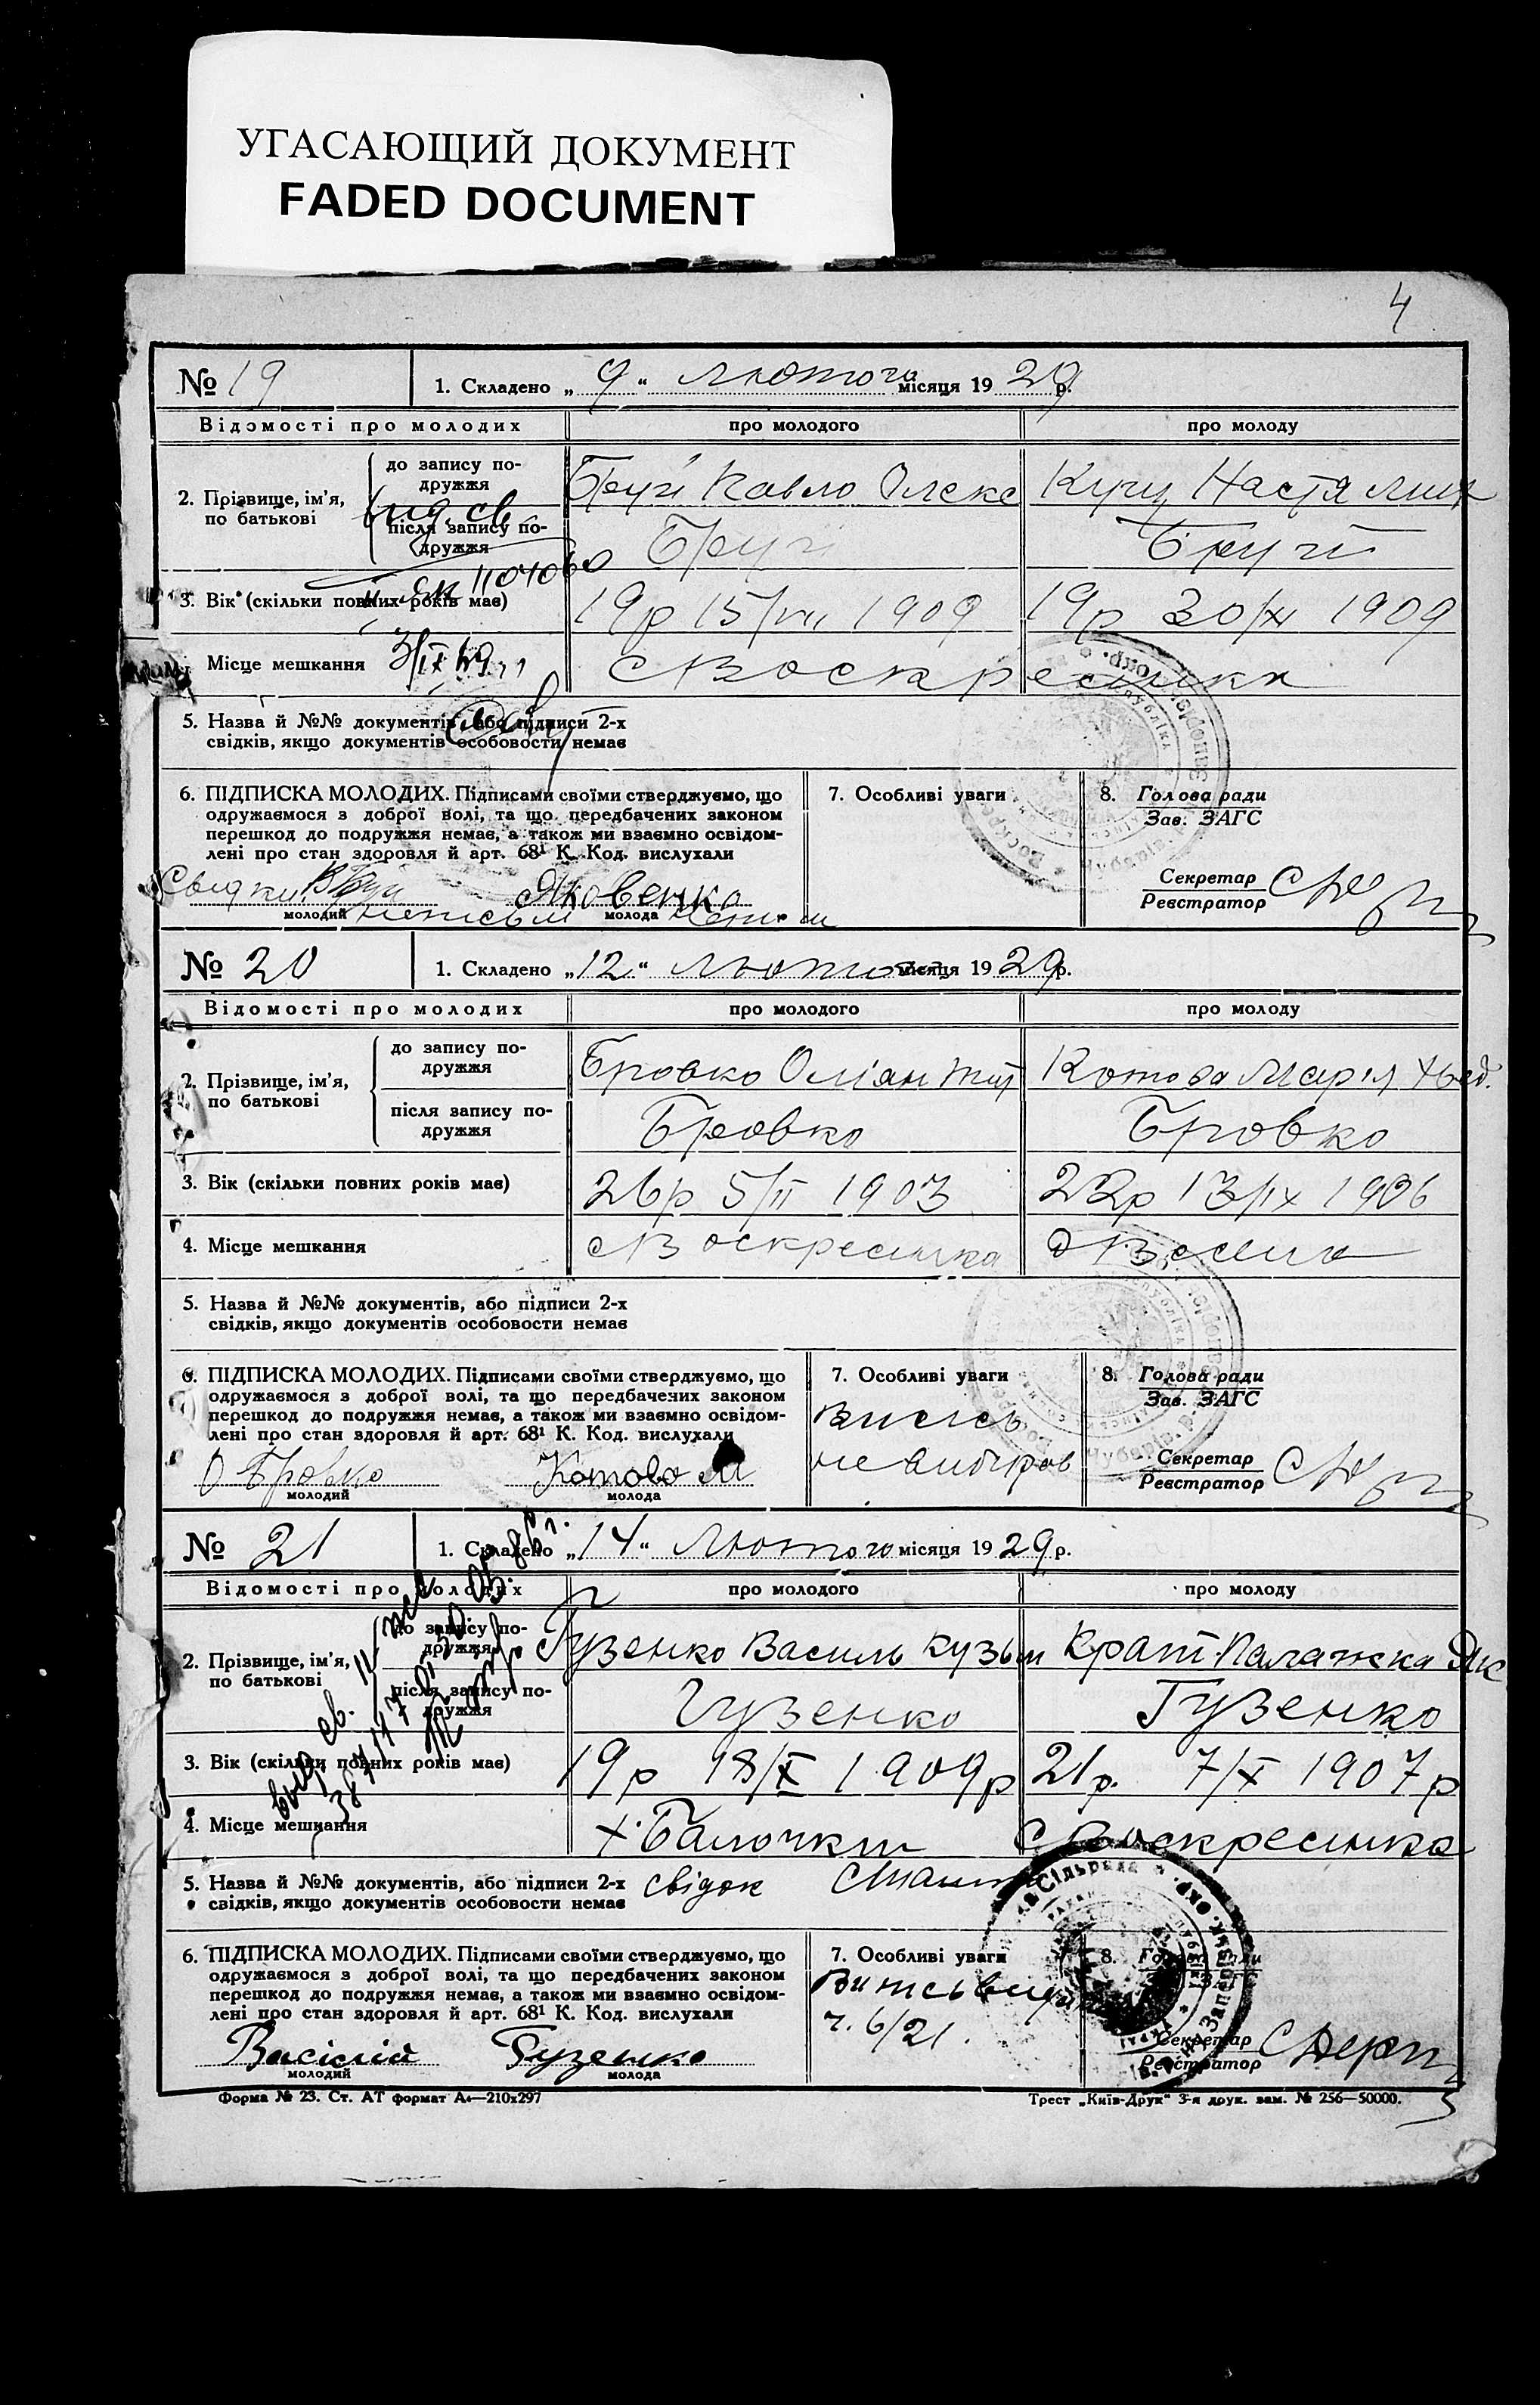 УГАСАЮЩИЙ ДОКУМЕНТ
FADED DOCUMENT
4
№ 19 1. Складено „ 9 “ Лютого місяця 19 29 р.
Відомості про молодих про молодого про молоду
2. Прізвище, ім’я, по батькові
до запису подружжя Павло Олекс Настя Мих
після запису подружжя
1104060
3. Вік (скільки повних років має) 19р 15/VII 1909 19р 30/XI 1909
Місце мешкання с Воскресинка
3/IX 49
5. Назва й №№ документів, або підписи 2-х
свідків, якщо документів особовости немає
6. ПІДПИСКА МОЛОДИХ. Підписами своїми стверджуємо, що
одружаємося з доброї волі, та що передбачених законом
перешкод до подружжя немає, а також ми взаємно освідом-
лені про стан здоровля й арт. 68¹ К. Код. вислухали
7. Особливі уваги
8. Голова ради
Зав. ЗАГС
Секретар
Реєстратор
Свидки Яковенко
молодий молода
№ 20 1. Складено „ 12 “ Лютого місяця 19 29 р.
Відомості про молодих про молодого про молоду
2. Прізвище, ім’я, по батькові
до запису подружжя Бровко Оліян Котова Марія
після запису подружжя Бровко Бровко
3. Вік (скільки повних років має) 26р 5/II 1903 22р 13/IX 1906
4. Місце мешкання с Воскресинка
5. Назва й №№ документів, або підписи 2-х
свідків, якщо документів особовости немає
6. ПІДПИСКА МОЛОДИХ. Підписами своїми стверджуємо, що
одружаємося з доброї волі, та що передбачених законом
перешкод до подружжя немає, а також ми взаємно освідом-
лені про стан здоровля й арт. 68¹ К. Код. вислухали
7. Особливі уваги
8. Голова ради
Зав. ЗАГС
Секретар
Реєстратор
О Бровко Котово М
молодий молода
№ 21 1. Складено „ 14 “ Лютого місяця 19 29 р.
Відомості про молодих про молодого про молоду
2. Прізвище, ім’я, по батькові
до запису подружжя Гузенко Василь Кузьм Крат Палажка Як
після запису подружжя Гузенко Гузенко
3. Вік (скільки повних років має) 19р 18/X 1909р 21р. 7/X 1907р
4. Місце мешкання х. Балочки с Воскресинка
5. Назва й №№ документів, або підписи 2-х
свідків, якщо документів особовости немає
свідок
6. ПІДПИСКА МОЛОДИХ. Підписами своїми стверджуємо, що
одружаємося з доброї волі, та що передбачених законом
перешкод до подружжя немає, а також ми взаємно освідом-
лені про стан здоровля й арт. 68¹ К. Код. вислухали
7. Особливі уваги
ч. 6/21.
8.
Секретар
Реєстратор
Васілій Гузенко
молодий молода
Форма № 23. Ст. АТ формат А₄—210х297 Трест „Київ-Друк“ 3-я друк. зам. № 256—50000.